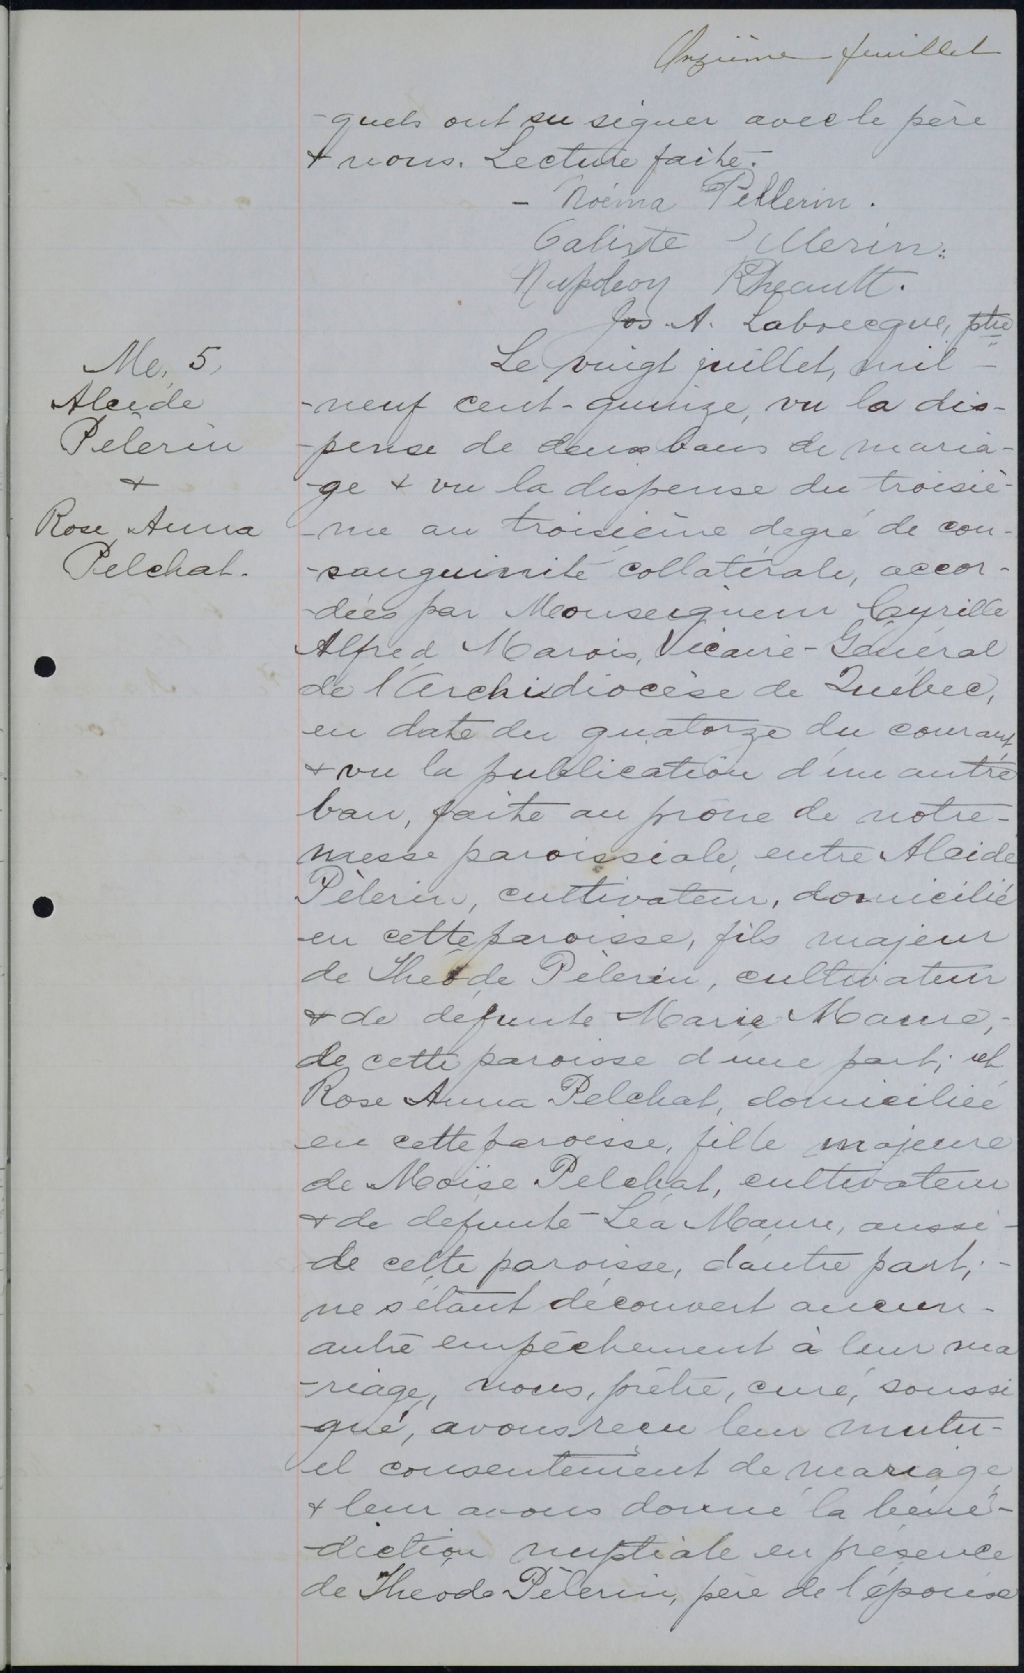 Onzième feuillet
-quels ont su signer avec le père
& nous. Lecture faite.-
- Noéma Pellerin.
Calixte Pellerin.
Napoleon Rheault.
Jos. A. Labrecque, ptre
Me. 5.
Alcide
Pelerin
&
Rose Anna
Pelchat.
Le vingt juillet, mil -
-neuf cent-quinze, vu la dis-
-pense de deux bans de maria-
-ge & vu la dispense du troisiè-
-me au troisième degré de con-
-sanguinité collatérale, accor-
-dées par Monseigneur Cyrille
Alfred Marois, Vicaire-Général
de l'Archidiocèse de Québec,
en date du quatorze du courant
& vu la publication d'un autre
ban, faite au prône de notre-
messe paroissiale, entre Alcide
Pèlerin, cultivateur, domicilié
en cette paroisse, fils majeur
de Théode Pèlerin, cultivateur
& de défunte Marie Maure,-
de cette paroisse d'une part; et
Rose Anna Pelchat, domiciliée
en cette paroisse, fille majeure
de Moïse Pelchat, cultivateur
& de défunte Léa Maure, aussi-
de cette paroisse, d'autre part;-
ne s'étant découvert aucun-
autre empêchement à leur ma
-riage, nous, prêtre, curé, soussi
-gné, avons reçu leur mutu-
-el consentement de mariage
& leur avons donné la béné-
-diction nuptiale en présence
de Théode Pèlerin, père de l'épouse